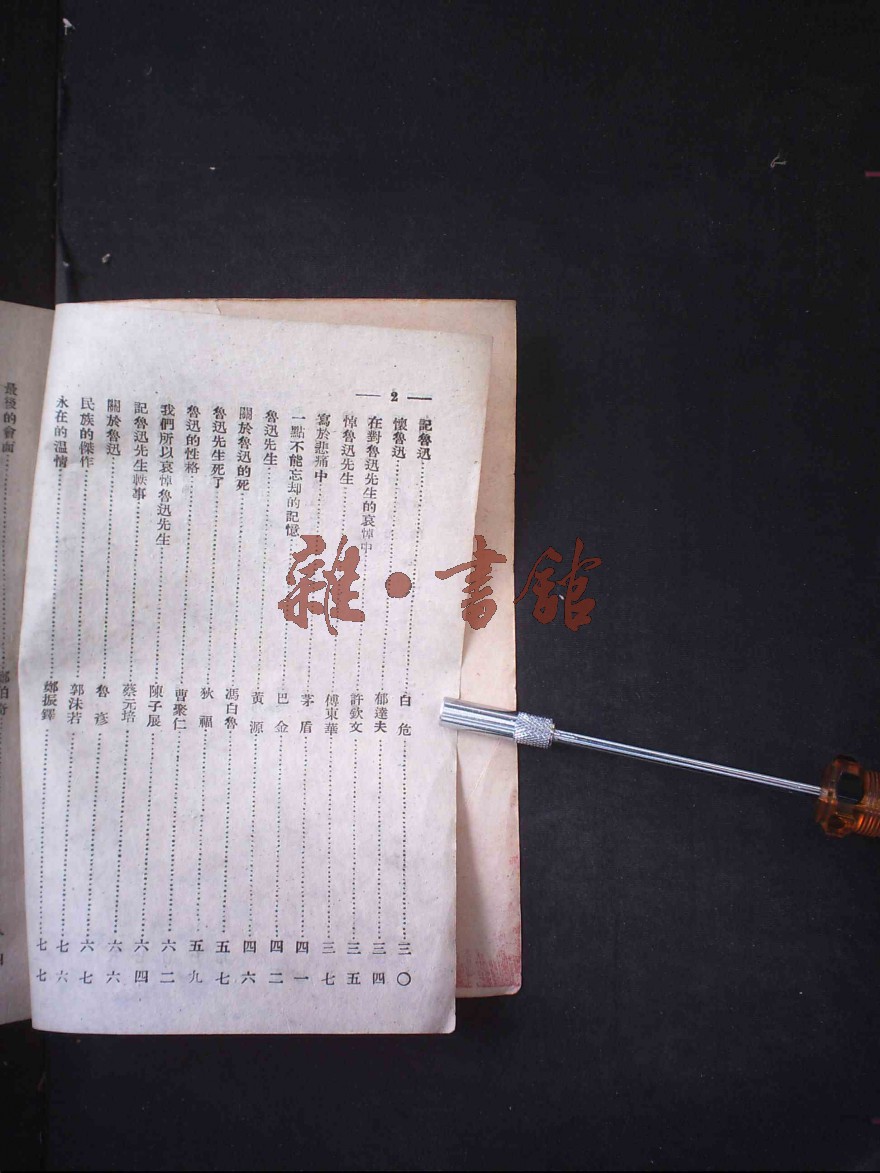 — 2 —
記魯迅……白危……三〇
懷魯迅……郁達夫……三四
在對魯迅先生的哀悼中……許欽文……三五
悼魯迅先生……傅東華……三七
寫於悲痛中……茅盾……四一
一點不能忘却的記憶……巴金……四二
魯迅先生……黃源……四六
關於魯迅的死……馮白魯……五七
魯迅先生死了……狄福……五九
魯迅的性格……曹聚仁……六二
我們所以哀悼魯迅先生……陳子展……六四
記魯迅先生軼事……蔡元培……六六
關於魯迅……魯彥……六七
民族的傑作……郭沫若……七六
永在的溫情……鄭振鐸……七七
最後的會面……
雜·書館